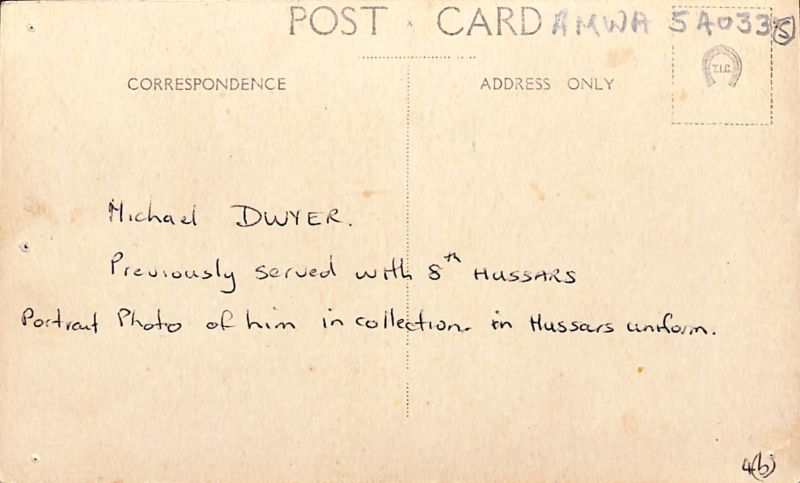 POST CARD AMWA 5A033 5
CORRESPONDENCE ADDRESS ONLY
T.I.C.
Michael DWYER.
Previously served with 8th HUSSARS
Portrait Photo of him in collection. in Hussars uniform.
4(b)